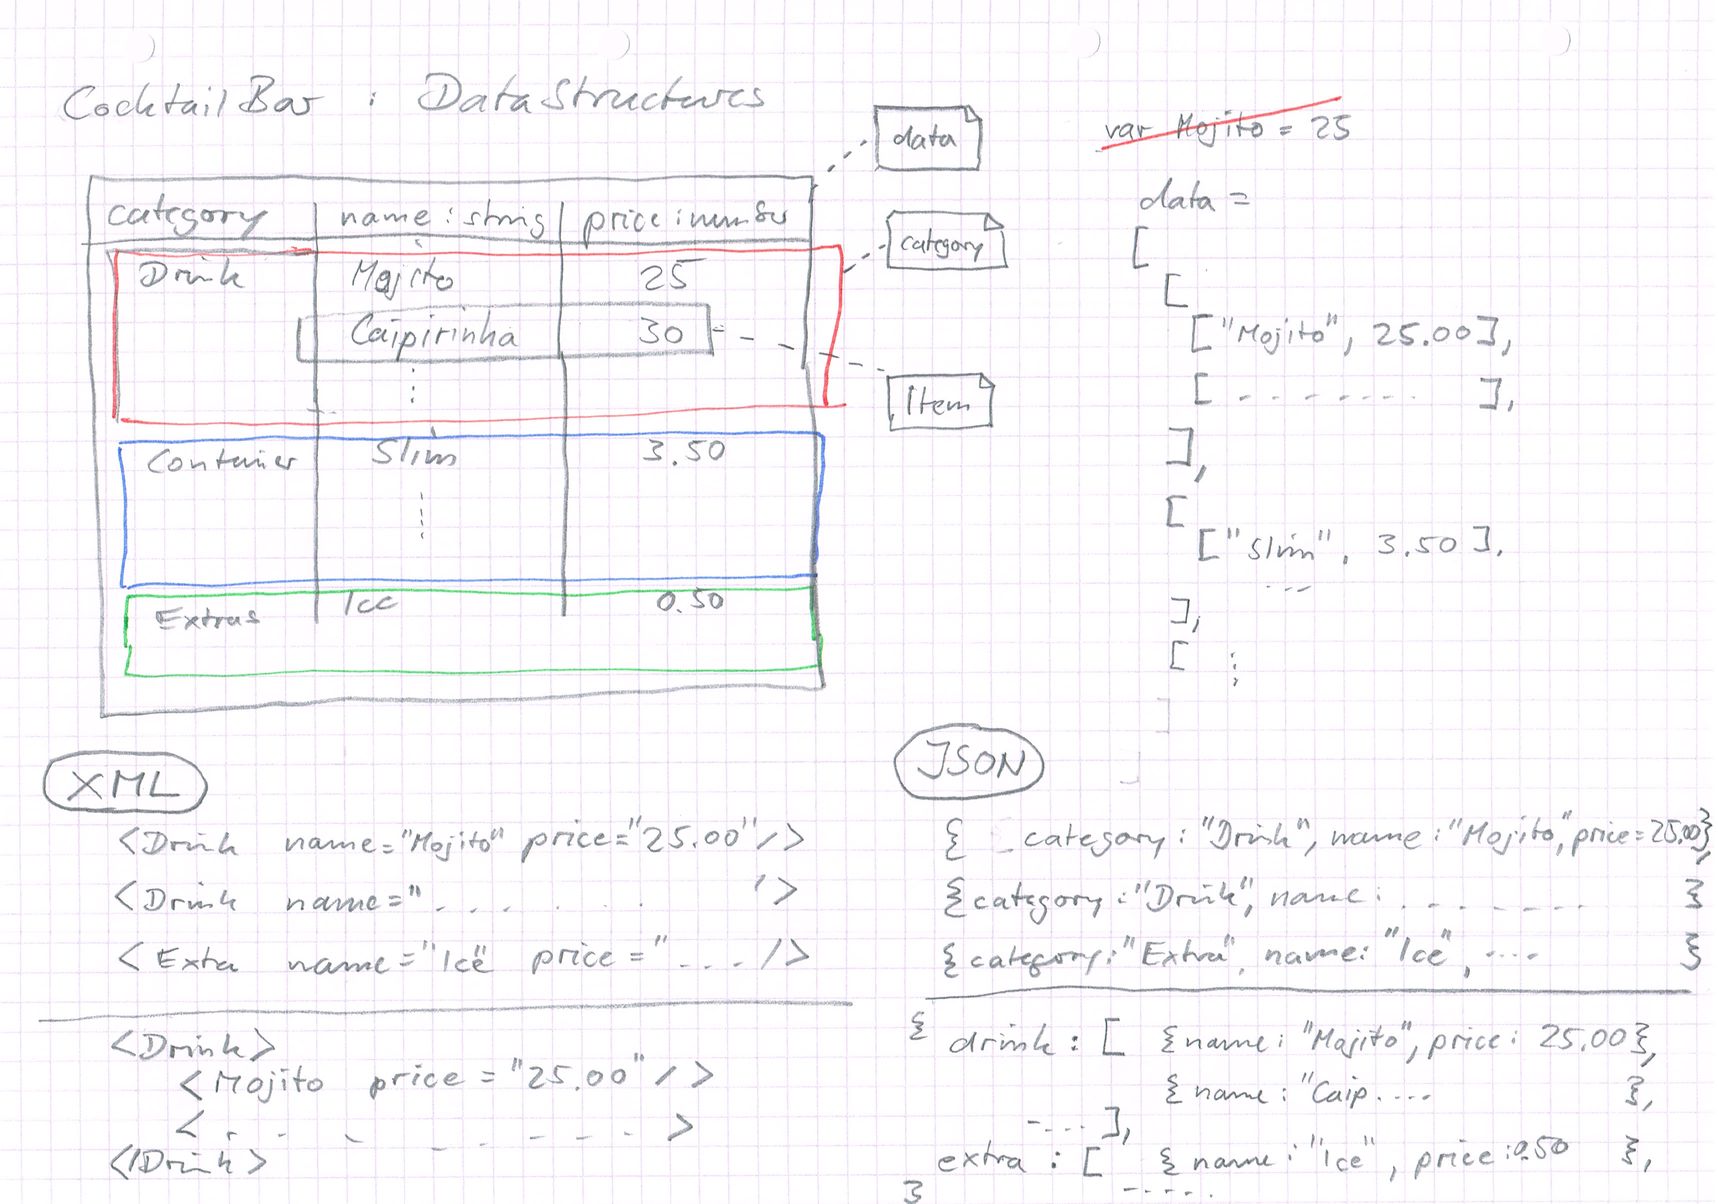 CocktailBar : DataStructures
data
category
Item
category name : string price : number
Drink Mojito 25
Caipirinha 30
Container Slim 3.50
Extras Ice 0.50
var Mojito = 25
data =
[
[
["Mojito", 25.00],
[ - - - - - - - ],
],
[
["Slim", 3.50],
---
],
[ :
]
]
XML
<Drink name="Mojito" price="25.00"/>
<Drink name=". . . . . '>
<Extra name="Ice" price="... />
<Drink>
<Mojito price = "25.00" />
< . - - - - - - - >
</Drink>
JSON
{ category : "Drink", name : "Mojito", price = 25.00},
{category : "Drink", name : . - - - - - - }
{category : "Extra", name: "Ice", .... }
{ drink : [ {name : "Mojito", price : 25.00},
{ name : "Caip.... },
----],
extra : [ { name : "Ice", price : 0.50 },
-----
}